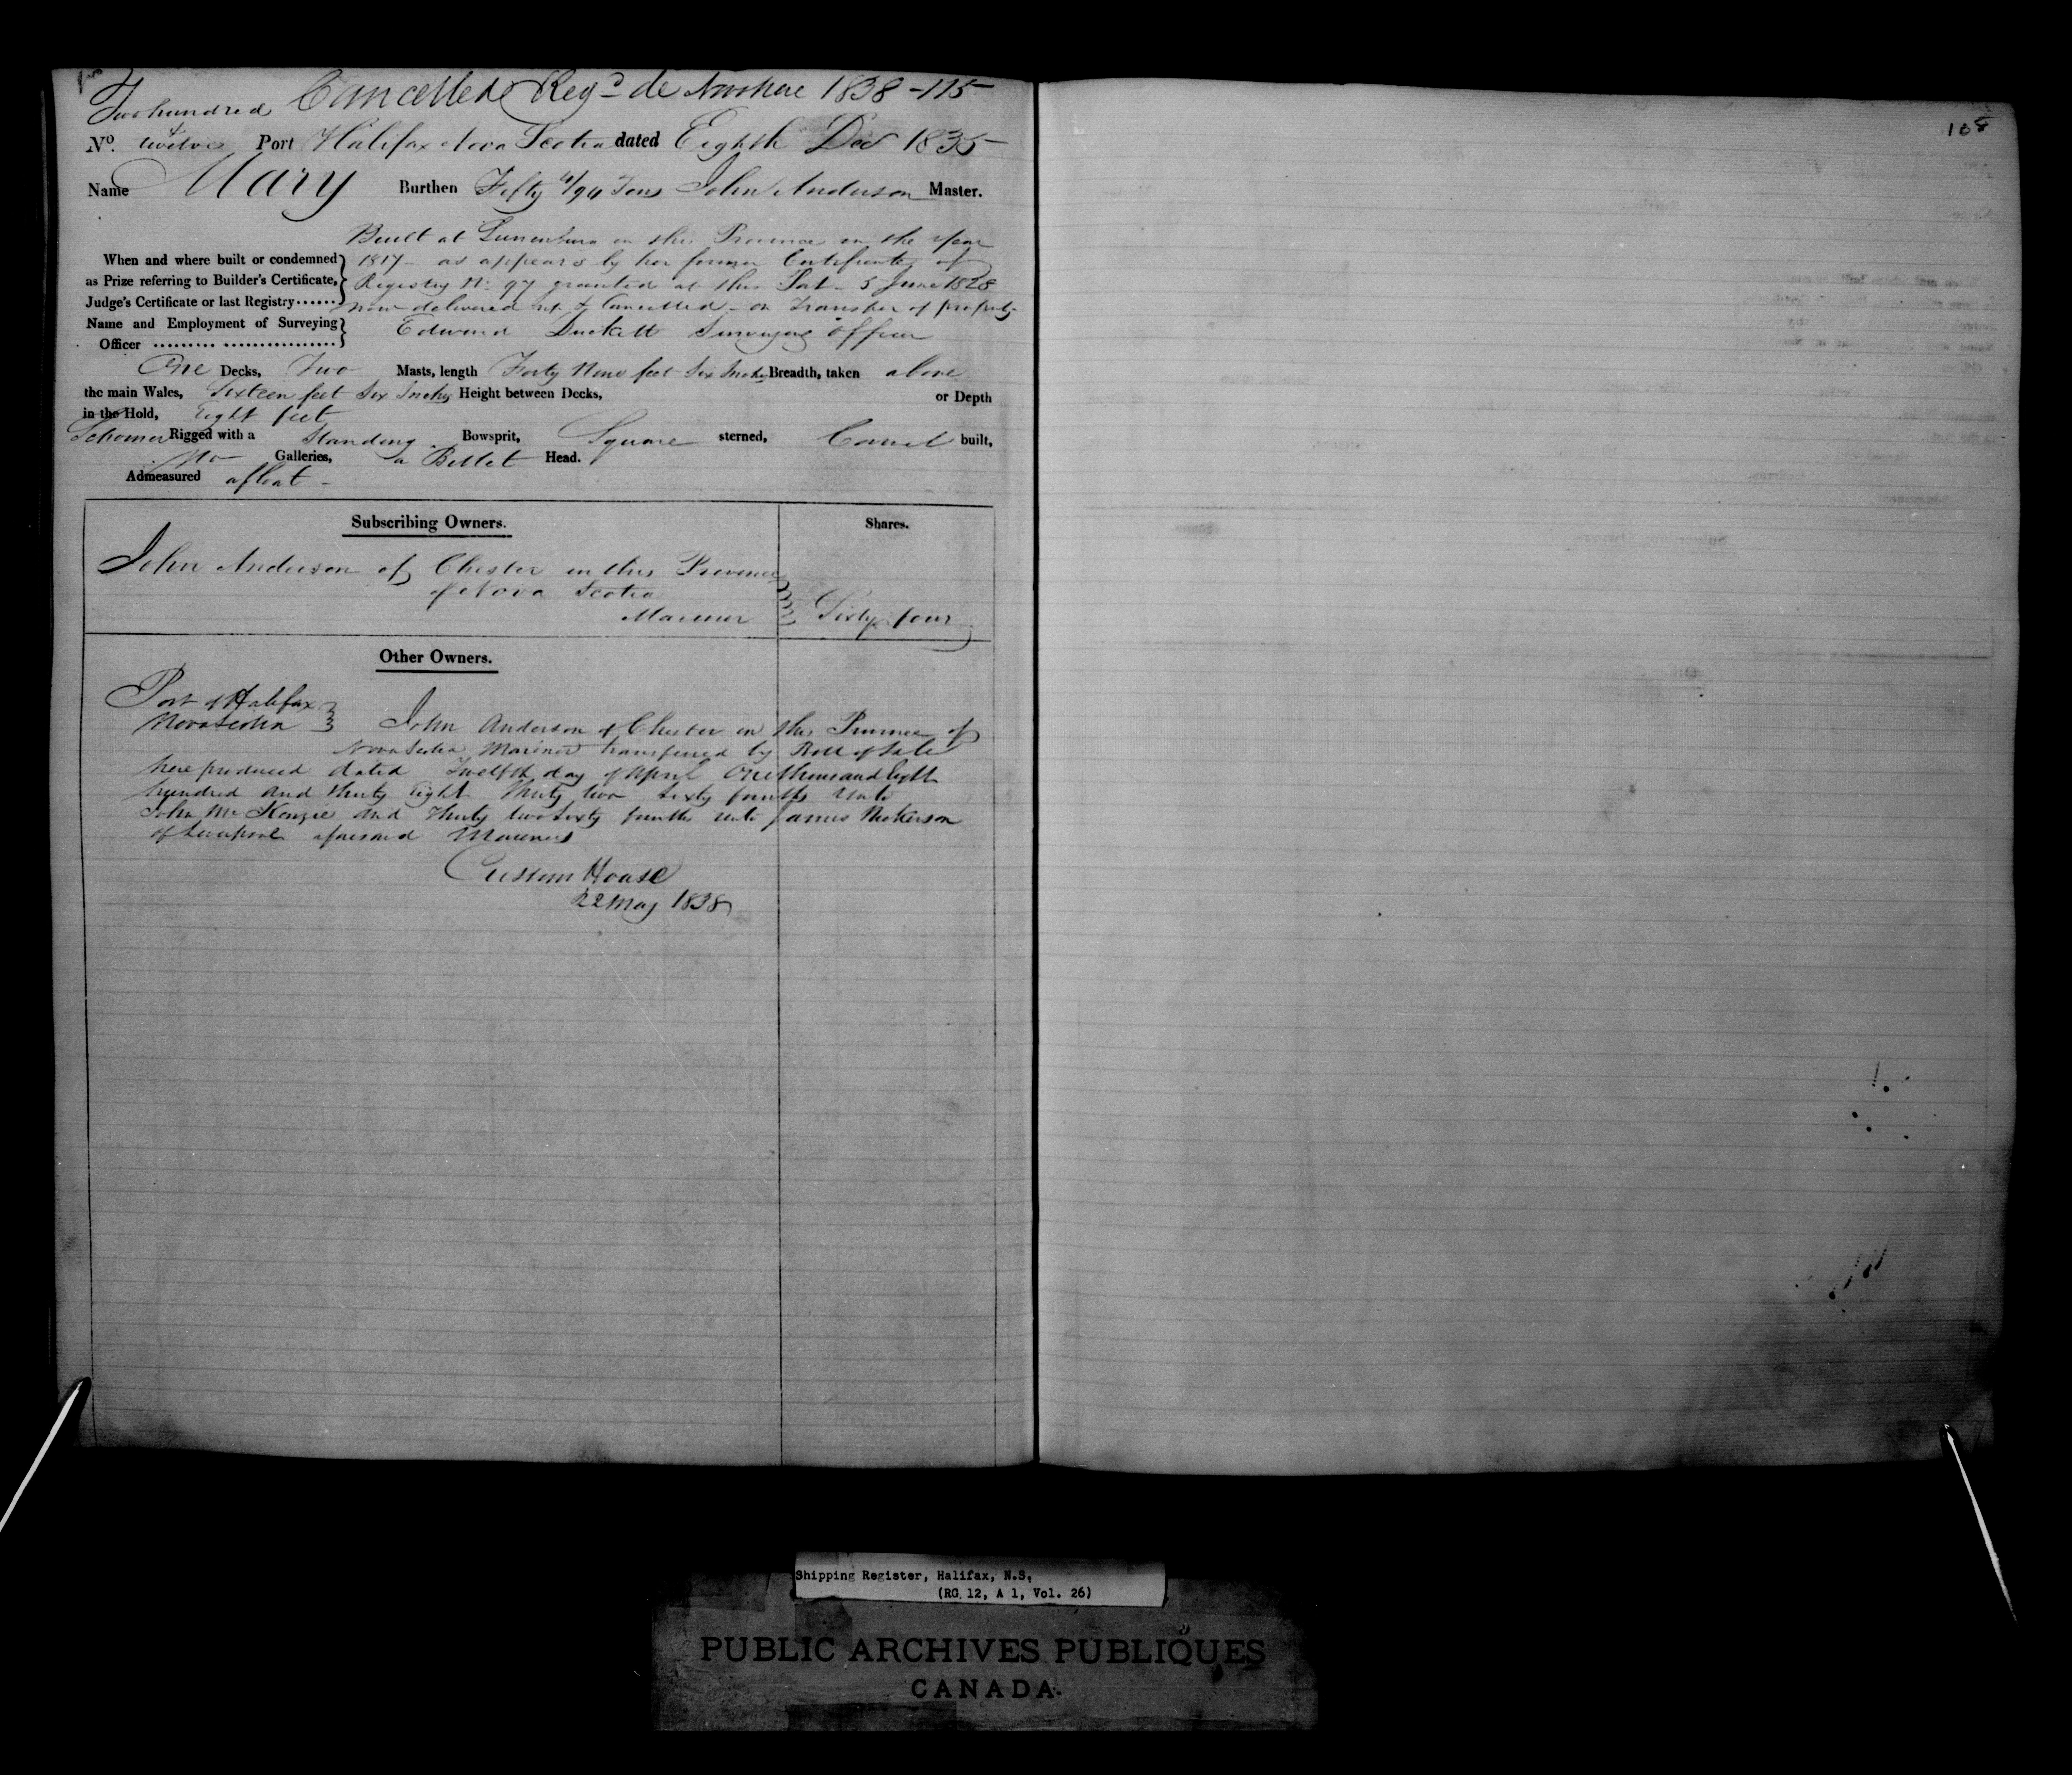 Cancelled Reg.d de Novo here 1838 - 115
Two hundred
No. & twelve Port Halifax Nova Scotia dated Eighth Dec 1835
Name Mary Burthen Fifty 4/94 Tons John Anderson Master.
Built at Lunenburg in this Province in the Year
When and where built or condemned 1817 - as appears by her former Certificate of
as Prize referring to Builder's Certificate, Registry No. 97 granted at this Port - 5 June 1828
Judge's Certificate or last Registry now delivered up & Cancelled - on Transfer of property
Name and Employment of Surveying Edward Duckett Surveying Officer
Officer
One Decks, Two Masts, length Forty Nine feet Six Inches Breadth, taken above
the main Wales, Sixteen feet Six Inches Height between Decks, or Depth
in the Hold, Eight feet
Schooner Rigged with a Standing Bowsprit, Square sterned, Carvel built,
No Galleries, a Billet Head.
Admeasured afloat -
Subscribing Owners. Shares.
John Anderson of Chester in this Province
of Nova Scotia
Mariner Sixty four
Other Owners.
Port of Halifax
Nova Scotia John Anderson of Chester in the Province of
Nova Scotia Mariner transferred by Bill of Sale
here produced dated Twelfth day of April One thousand Eight
hundred and thirty Eight Thirty two Sixty fourths Unto
John McKenzie and Thirty two Sixty fourths unto James Nickerson
of Liverpool aforesaid Mariners
Custom House
22 May 1838
108
Shipping Register, Halifax, N.S.
(RG 12, A 1, Vol. 26)
PUBLIC ARCHIVES PUBLIQUES
CANADA